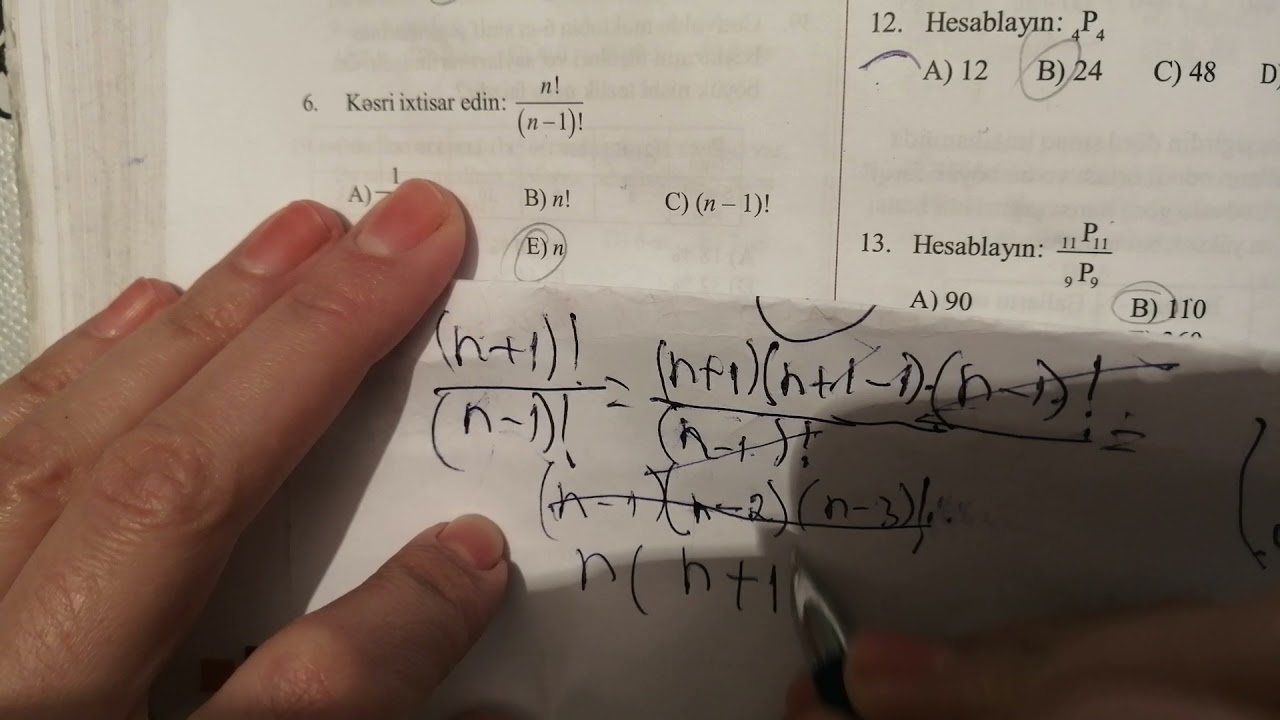 6. Kəsri ixtisar edin: n!/(n−1)!
A) 1
B) n! C) (n − 1)!
E) n
12. Hesablayın: ₄P₄
A) 12 B) 24 C) 48 D)
13. Hesablayın: ₁₁P₁₁/₉P₉
A) 90 B) 110
(n+1)!/(n-1)! = (n+1)(n+1-1).(n-1)!/(n-1)! =
(n-1)(n-2)(n-3)!
n(n+1